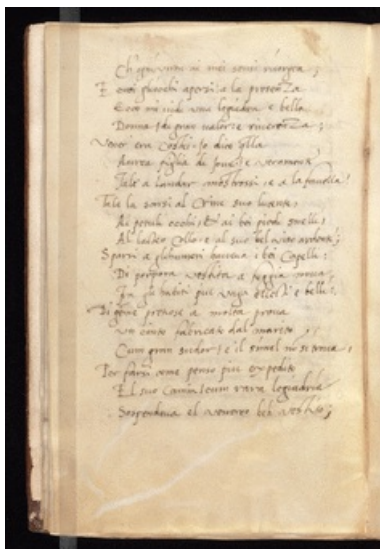 Ch ogni virtu ai mei sensi
E cossi gliocchi apersi: a la presenza
Ecco mi vidi una legiadra e bella
Donna: di gran valor: e riverenza;
Vener era costei: so dire qlla
Aurea figlia di Jove: e veramente
Tale a laudar mostrossi: e a la favella:
Tale la parsi al Crine suo lucente;
Ai petuli occhi: & ai bei piedi snelli;
Al latteo Collo: e al suo bel viso ardente;
Sparsi a gli humeri haveva i bei Capelli:
Di porpora vestita a foggia nova
fra gli habiti piu vaga e belli:
Di geme pretiose a molta prova
un cinto fabricato dal marito
Cum gran sudor: e il simel no se trova:
Per farsi come penso piu expedito
El suo Camin: cum rara legiadria
Sospendeva el bel vestito;